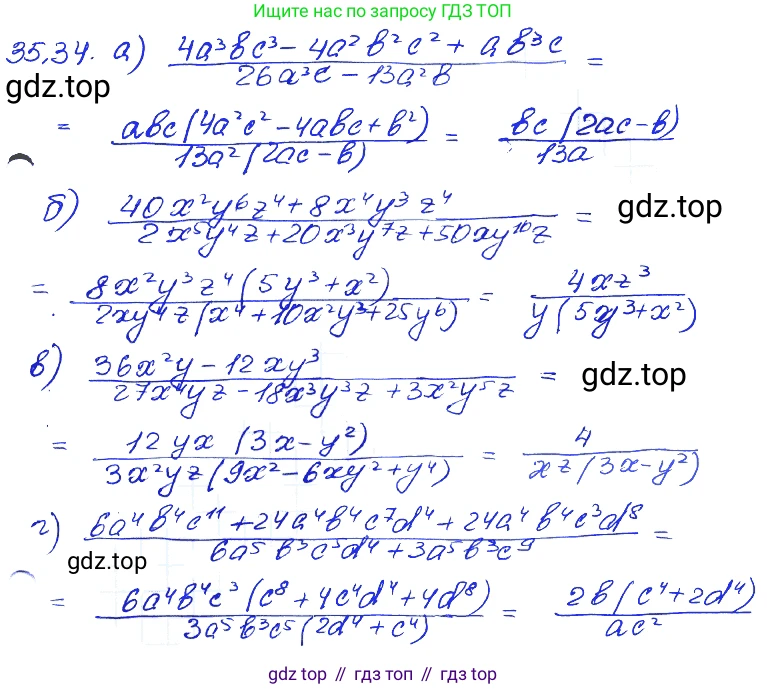 Ищите нас по запросу ГДЗ ТОП
35.34. а) (4a³bc³ − 4a²b²c² + ab³c)/(26a³c − 13a²b) =
gdz.top
= abc(4a²c² − 4abc + b²)/(13a²(2ac − b)) = bc(2ac − b)/(13a)
б) (40x²y⁶z⁴ + 8x⁴y³z⁴)/(2x⁵y⁴z + 20x³y⁷z + 50xy¹⁰z) =
gdz.top
= 8x²y³z⁴(5y³ + x²)/(2xy⁴z(x⁴ + 10x²y³ + 25y⁶)) = 4xz³/(y(5y³ + x²))
в) (36x²y − 12xy³)/(27x⁴yz − 18x³y³z + 3x²y⁵z) =
gdz.top
= 12yx(3x − y²)/(3x²yz(9x² − 6xy² + y⁴)) = 4/(xz(3x − y²))
г) (6a⁴b⁴c¹¹ + 24a⁴b⁴c⁷d⁴ + 24a⁴b⁴c³d⁸)/(6a⁵b³c⁵d⁴ + 3a⁵b³c⁹) =
gdz.top
= 6a⁴b⁴c³(c⁸ + 4c⁴d⁴ + 4d⁸)/(3a⁵b³c⁵(2d⁴ + c⁴)) = 2b(c⁴ + 2d⁴)/(ac²)
gdz top // гдз топ // gdz top // гдз топ